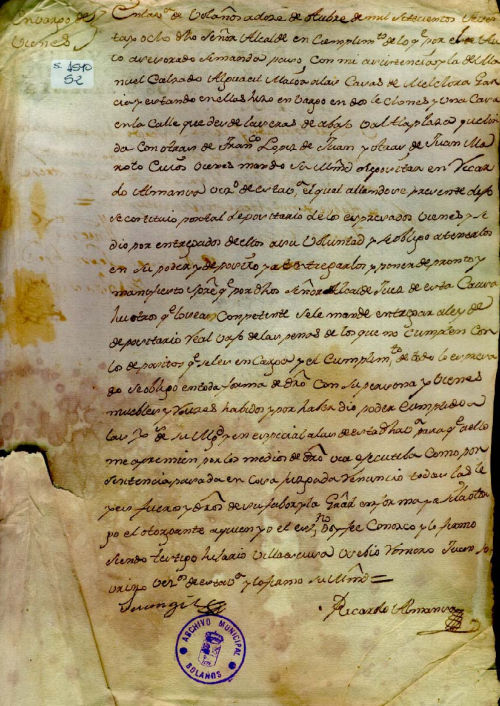 Envargo de
vienes
S. 1510
52
En la v.ª de Volaños a dose de otubre de mil setecientos
ta y ocho dho Señor Alcalde en Cumplim.to de lo q.e por el
to anteseden se manda paso Con mi asistencia y la de Ma
nuel Calzado Alguacil Maior a las Casas de Melchora Gar
cia y estando en ellas hizo envargo en dos lechones y una Casa
en la Calle que de las eras de avajo va a la plaza y Alin
da Con otras de Fran.co Lopez de Juan y otras de Juan Ma
Cuios vienes mando Su Mrd depositar en Ricar
do Almansa vez.o de esta v.ª el qual allandose presente dijo
se Costituio por tal depositario de los espresados vienes y se
dio por entregado de ellos a su Voluntad y se obligo a tenerlos
en su poder y de pronto y
manifiesto q.e por dho Señor Alcalde Juez de esta Causa
hu otro q.e lo sea Competente se le mande entregar a ley de
depositario Real vajo de las penas de los que no Cumplen Con
los depositos q.e se les encarga y el Cumplim.to de todo lo espresa
do se obligo en toda forma de dro Con su persona y vienes
muebles y raizes habidos y por haber dio poder Cumplido a
las de su Mag.d en especial a las de esta v.ª para q.e a ello
me apremien por los medios de dro via ejecutiva Como por
sentencia pasada en Cosa Juzgada Renuncio todas las le
yes fueros y dros de su fabor y la Gral en forma
el otorgante a quien yo el es.no doy fee Conozco y lo firmo
siendo testigo hilario Villaescusa Juan
vez.os de esta v.ª y lo firmo su Mrd =
Ricardo Almansa
ARCHIVO MUNICIPAL
BOLAÑOS